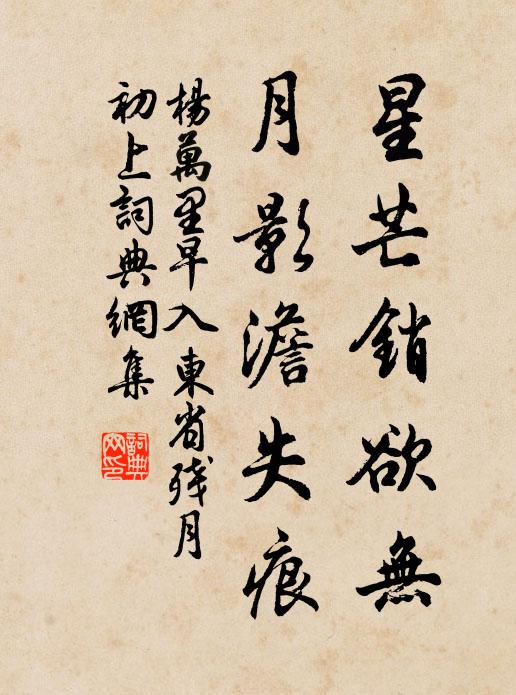 星芒銷欲無
月影澹失痕
楊萬里早入東省殘月
初上詞典網集
詞典网印